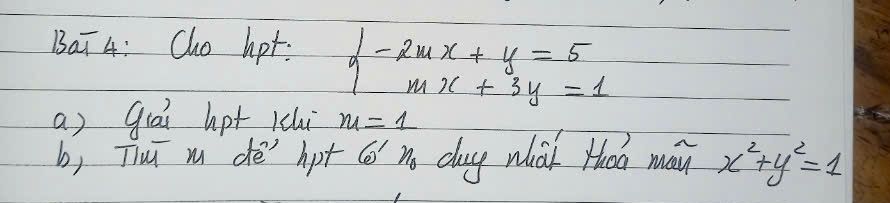 Bài 4: Cho hpt: { -2mx + y = 5
mx + 3y = 1
a) Giải hpt khi m = 1
b, Tìm m để hpt có no duy nhất thoả mãn x²+y²=1